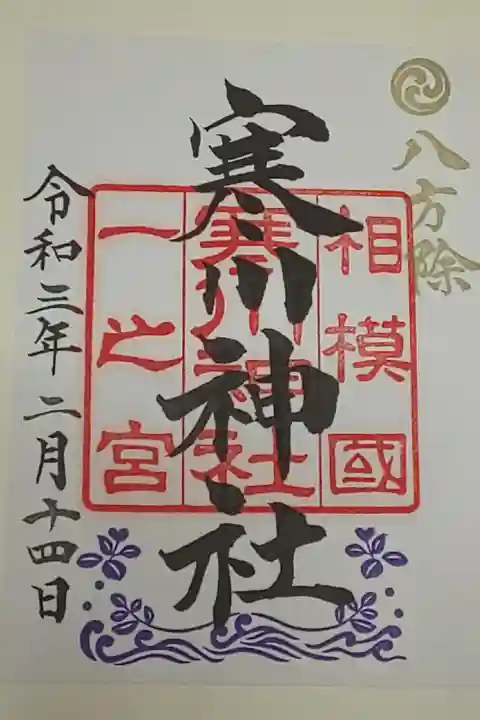 八方除
寒川神社
相模國
寒川神社
一之宮
令和三年二月十四日